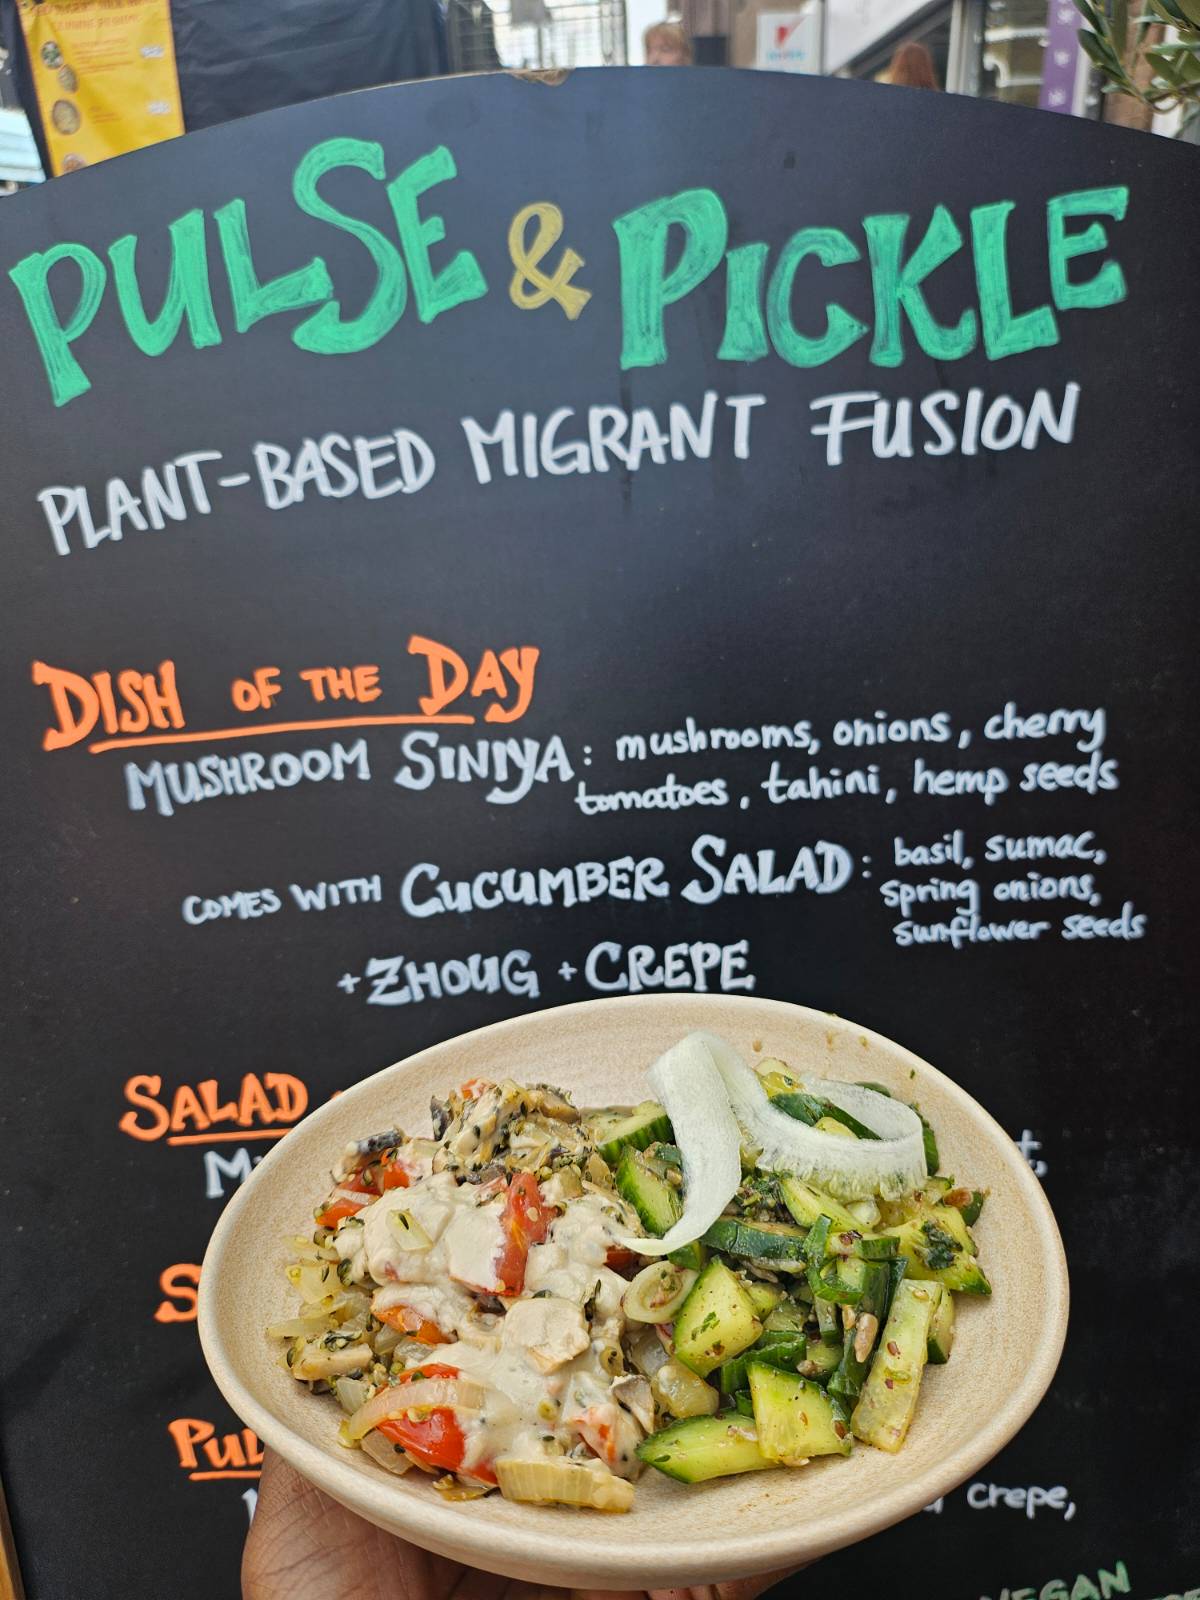 PULSE & PICKLE
PLANT-BASED MIGRANT FUSION
DISH OF THE DAY
MUSHROOM SINIYA: mushrooms, onions, cherry
tomatoes, tahini, hemp seeds
COMES WITH CUCUMBER SALAD: basil, sumac,
spring onions,
sunflower seeds
+ ZHOUG + CREPE
SALAD
crepe,
VEGAN